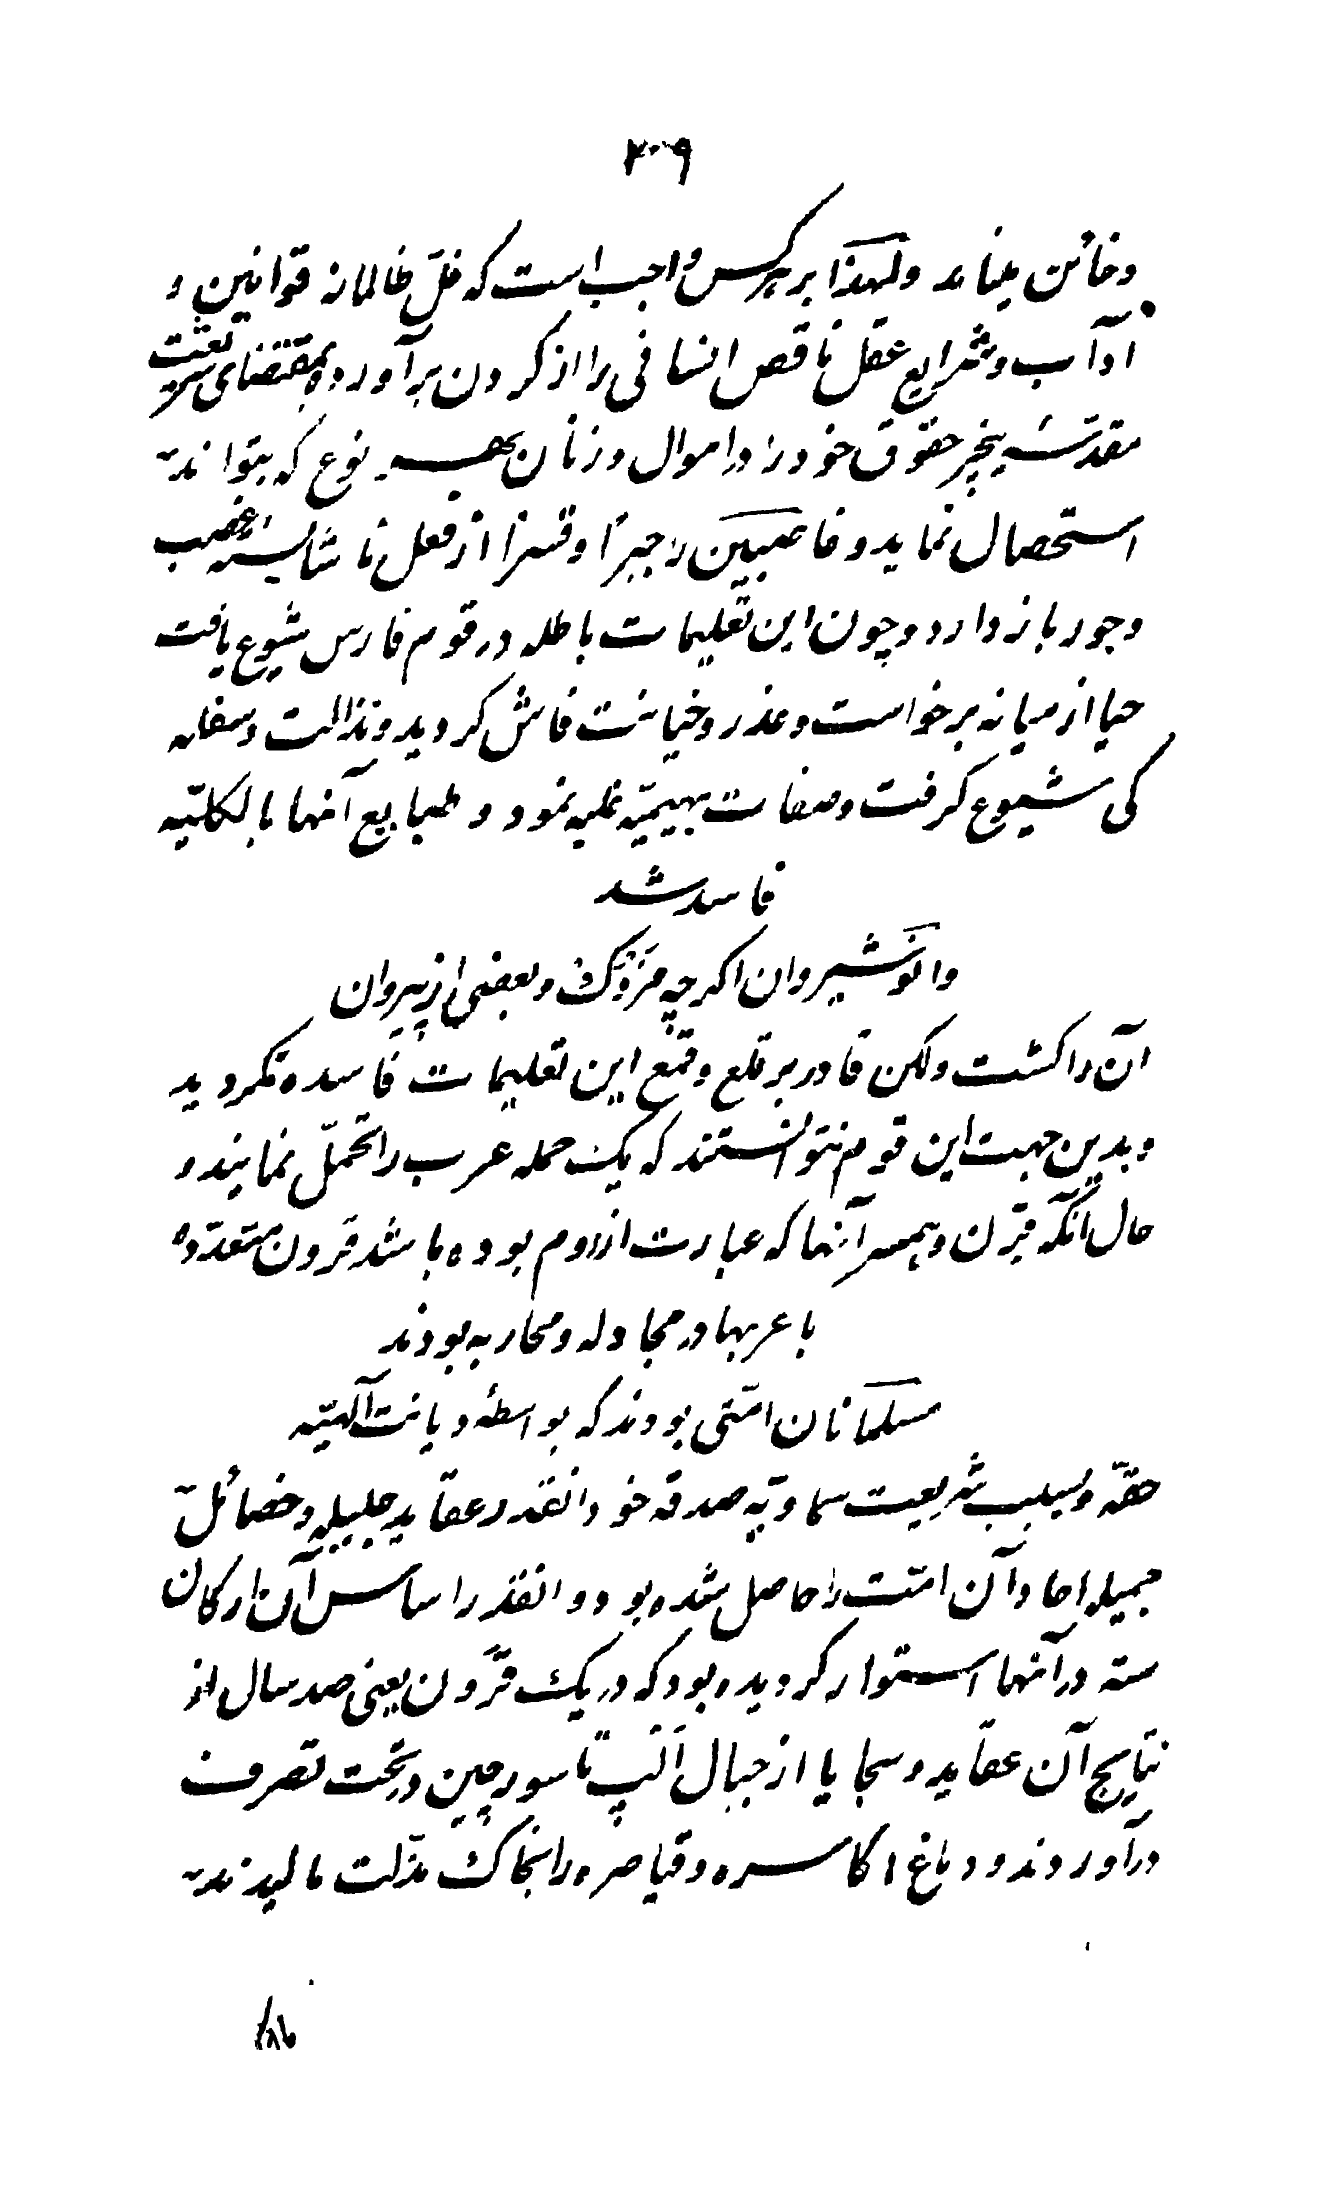 ۲۰۹
و خائن مینامند ولهذا بر هر کس واجب است که غل ظالمانه قوانین و
آداب و شرایع عقل ناقص انسانی را از گردن برآورده بمقتضای شریعت
مقدسه نیچر حقوق خود را در اموال و زنان بهر نوع که بتواند
استحصال نماید و غاصبین را جبراً و قسراً از فعل ناشایسته غصب
و جور باز دارد و چون این تعلیمات باطله در قوم فارس شیوع یافت
حیا از میانه برخواست و غدر و خیانت فاش گردید و نذالت و سفله
گی شیوع گرفت و صفات بهیمیّه غلبه نمود و طبایع آنها بالکلیّه
فاسد شد
و انوشیروان اگرچه مزدک و بعضی از پیروان
آن را کشت ولکن قادر بر قلع و قمع این تعلیمات فاسده نگردید
و بدین جهت این قوم نتوانستند که یک حمله عرب را تحمّل نمایند و
حال آنکه قرن و همسر آنها که عبارت از روم بوده باشد قرون متعدّده
با عربها در مجادله و محاربه بودند
مسلمانان امّتی بودند که بواسطهٔ دیانت الهیّه
حقّه و بسبب شریعت سماویّه صدقه خود آنقدر عقاید جلیله و خصائل
جمیله احاد آن امّت را حاصل شده بود و آنقدر اساس آن ارکان
سته در آنها استوار گردیده بود که در یک قرون یعنی صد سال از
نتایج آن عقاید و سجایا از جبال الپ تا سور چین در تحت تصرف
درآوردند و دماغ اکاسره و قیاصره را بخاک مذّلت مالیدند